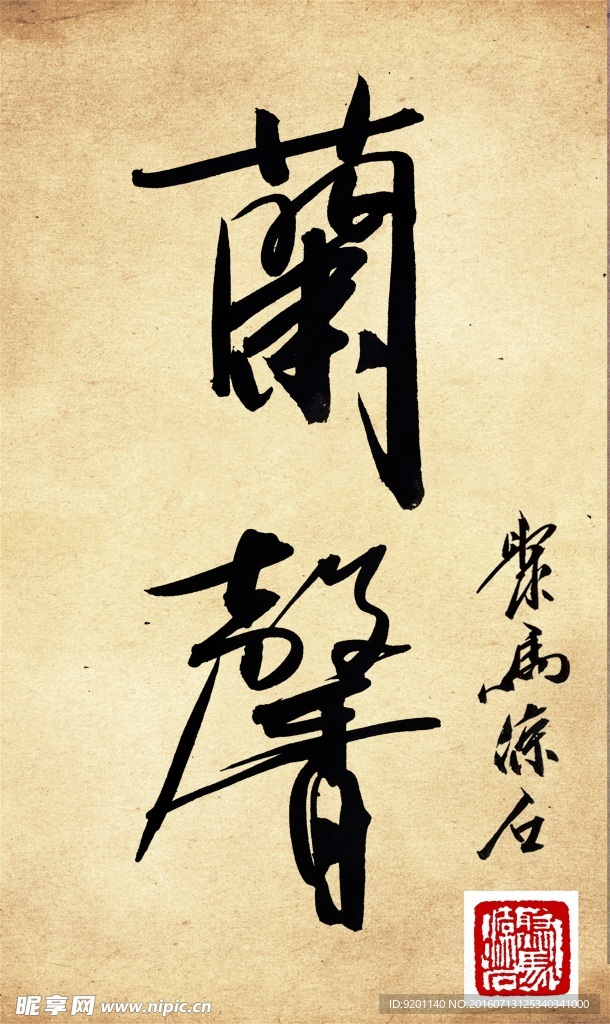 蘭馨
馬涼石
昵享网 www.nipic.cn
ID:9201140 NO:20160713125340341000